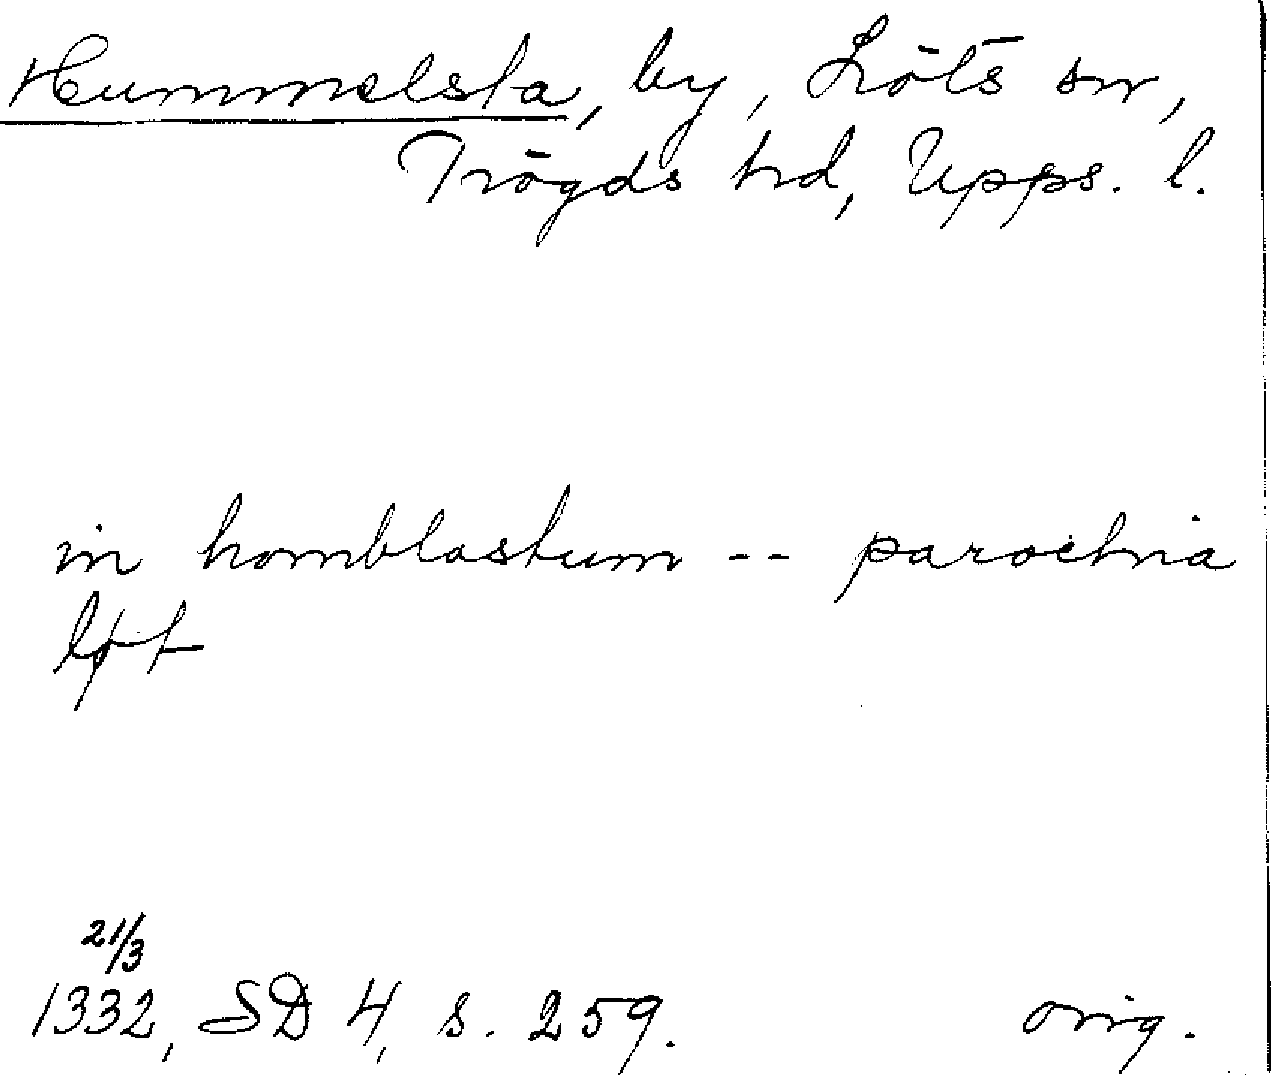 Hummelsta, by, Löts sn,
Trögds hd, Upps. l.
in homblastum -- parochia
løt
21/3
1332, SD 4, s. 259. orig.